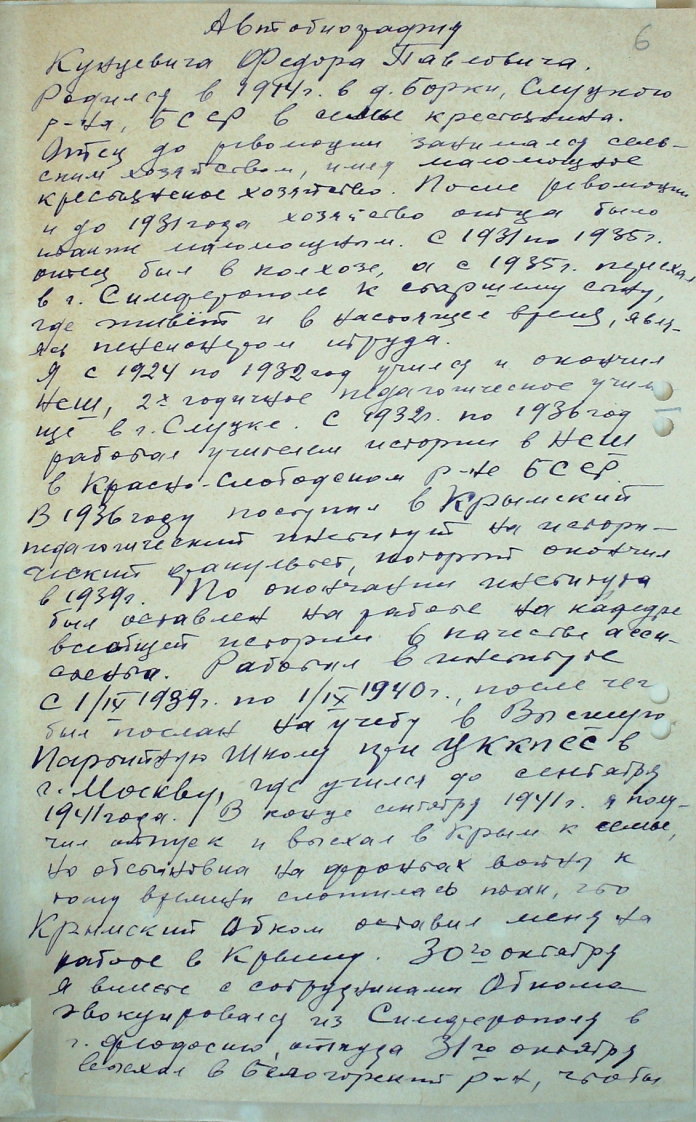 Автобиография
6
Кунцевича Федора Павловича.
Родился в 1914г. в д. Борки, Слуцкого
р-на, БССР в семье крестьянина.
Отец до революции занимался сель-
ским хозяйством, имея маломощное
крестьянское хозяйство. После революции
и до 1931 года хозяйство отца было
также маломощным. С 1931 по 1935г.
отец был в колхозе, а с 1935г. переехал
в г. Симферополь к старшему сыну,
где живёт и в настоящее время, явля-
ясь пенсионером труда.
Я с 1924 по 1932 год учился и окончил
НСШ, 2х годичное педагогическое учили
ще в г. Слуцке. С 1932г. по 1936 год
работал учителем истории в НСШ
в Красно-Слободском р-не БССР
В 1936 году поступил в Крымский
педагогический институт на истори-
ческий факультет, который окончил
в 1939г. По окончании института
был оставлен на работе на кафедре
всеобщей истории в качестве асси-
стента. Работал в институте
с 1/IX 1939г. по 1/IX 1940г., после чего
был послан на учебу в Высшую
Партийную Школу при ЦККПСС в
г. Москву, где учился до сентября
1941 года. В конце сентября 1941г. я полу-
чил отпуск и выехал в Крым к семье,
но обстановка на фронтах войны к
тому времени сложилась так, что
Крымский Обком оставил меня на
работе в Крыму. 30го октября
я вместе с сотрудниками Обкома
эвакуировался из Симферополя в
г. Феодосию, откуда 31го октября
выехал в Белогорский р-н, чтобы